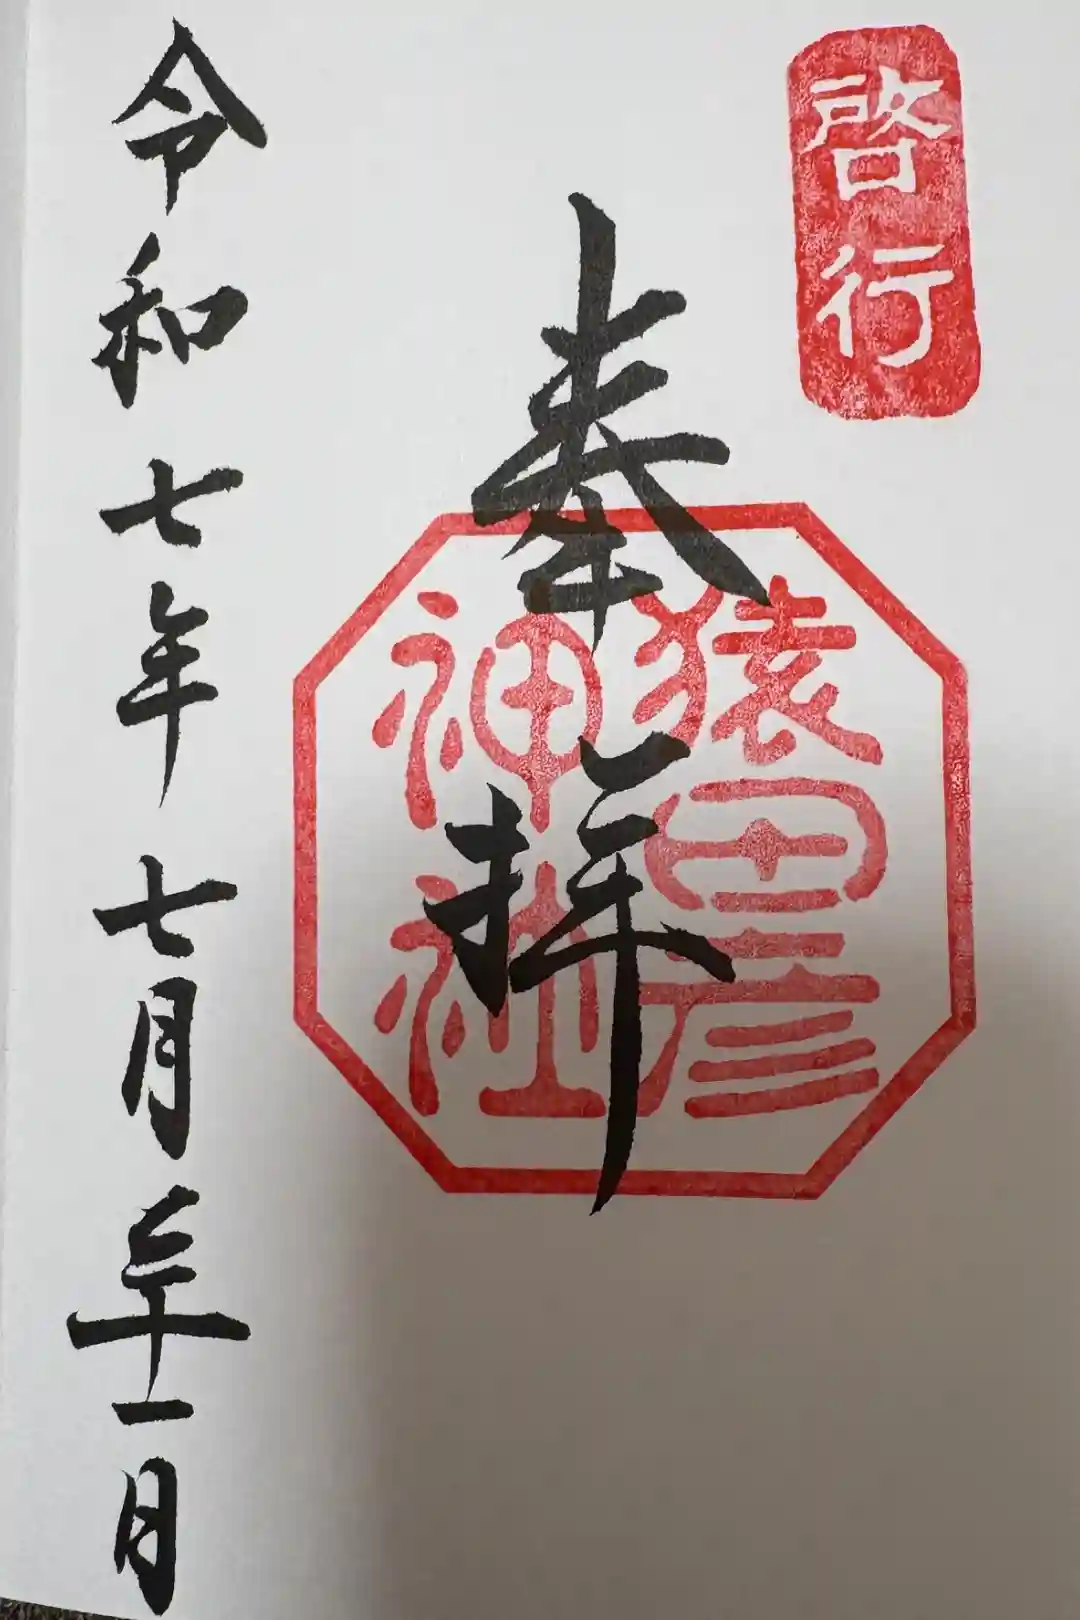 啓行
奉拝
猿田彦
神社
令和七年七月三十一日